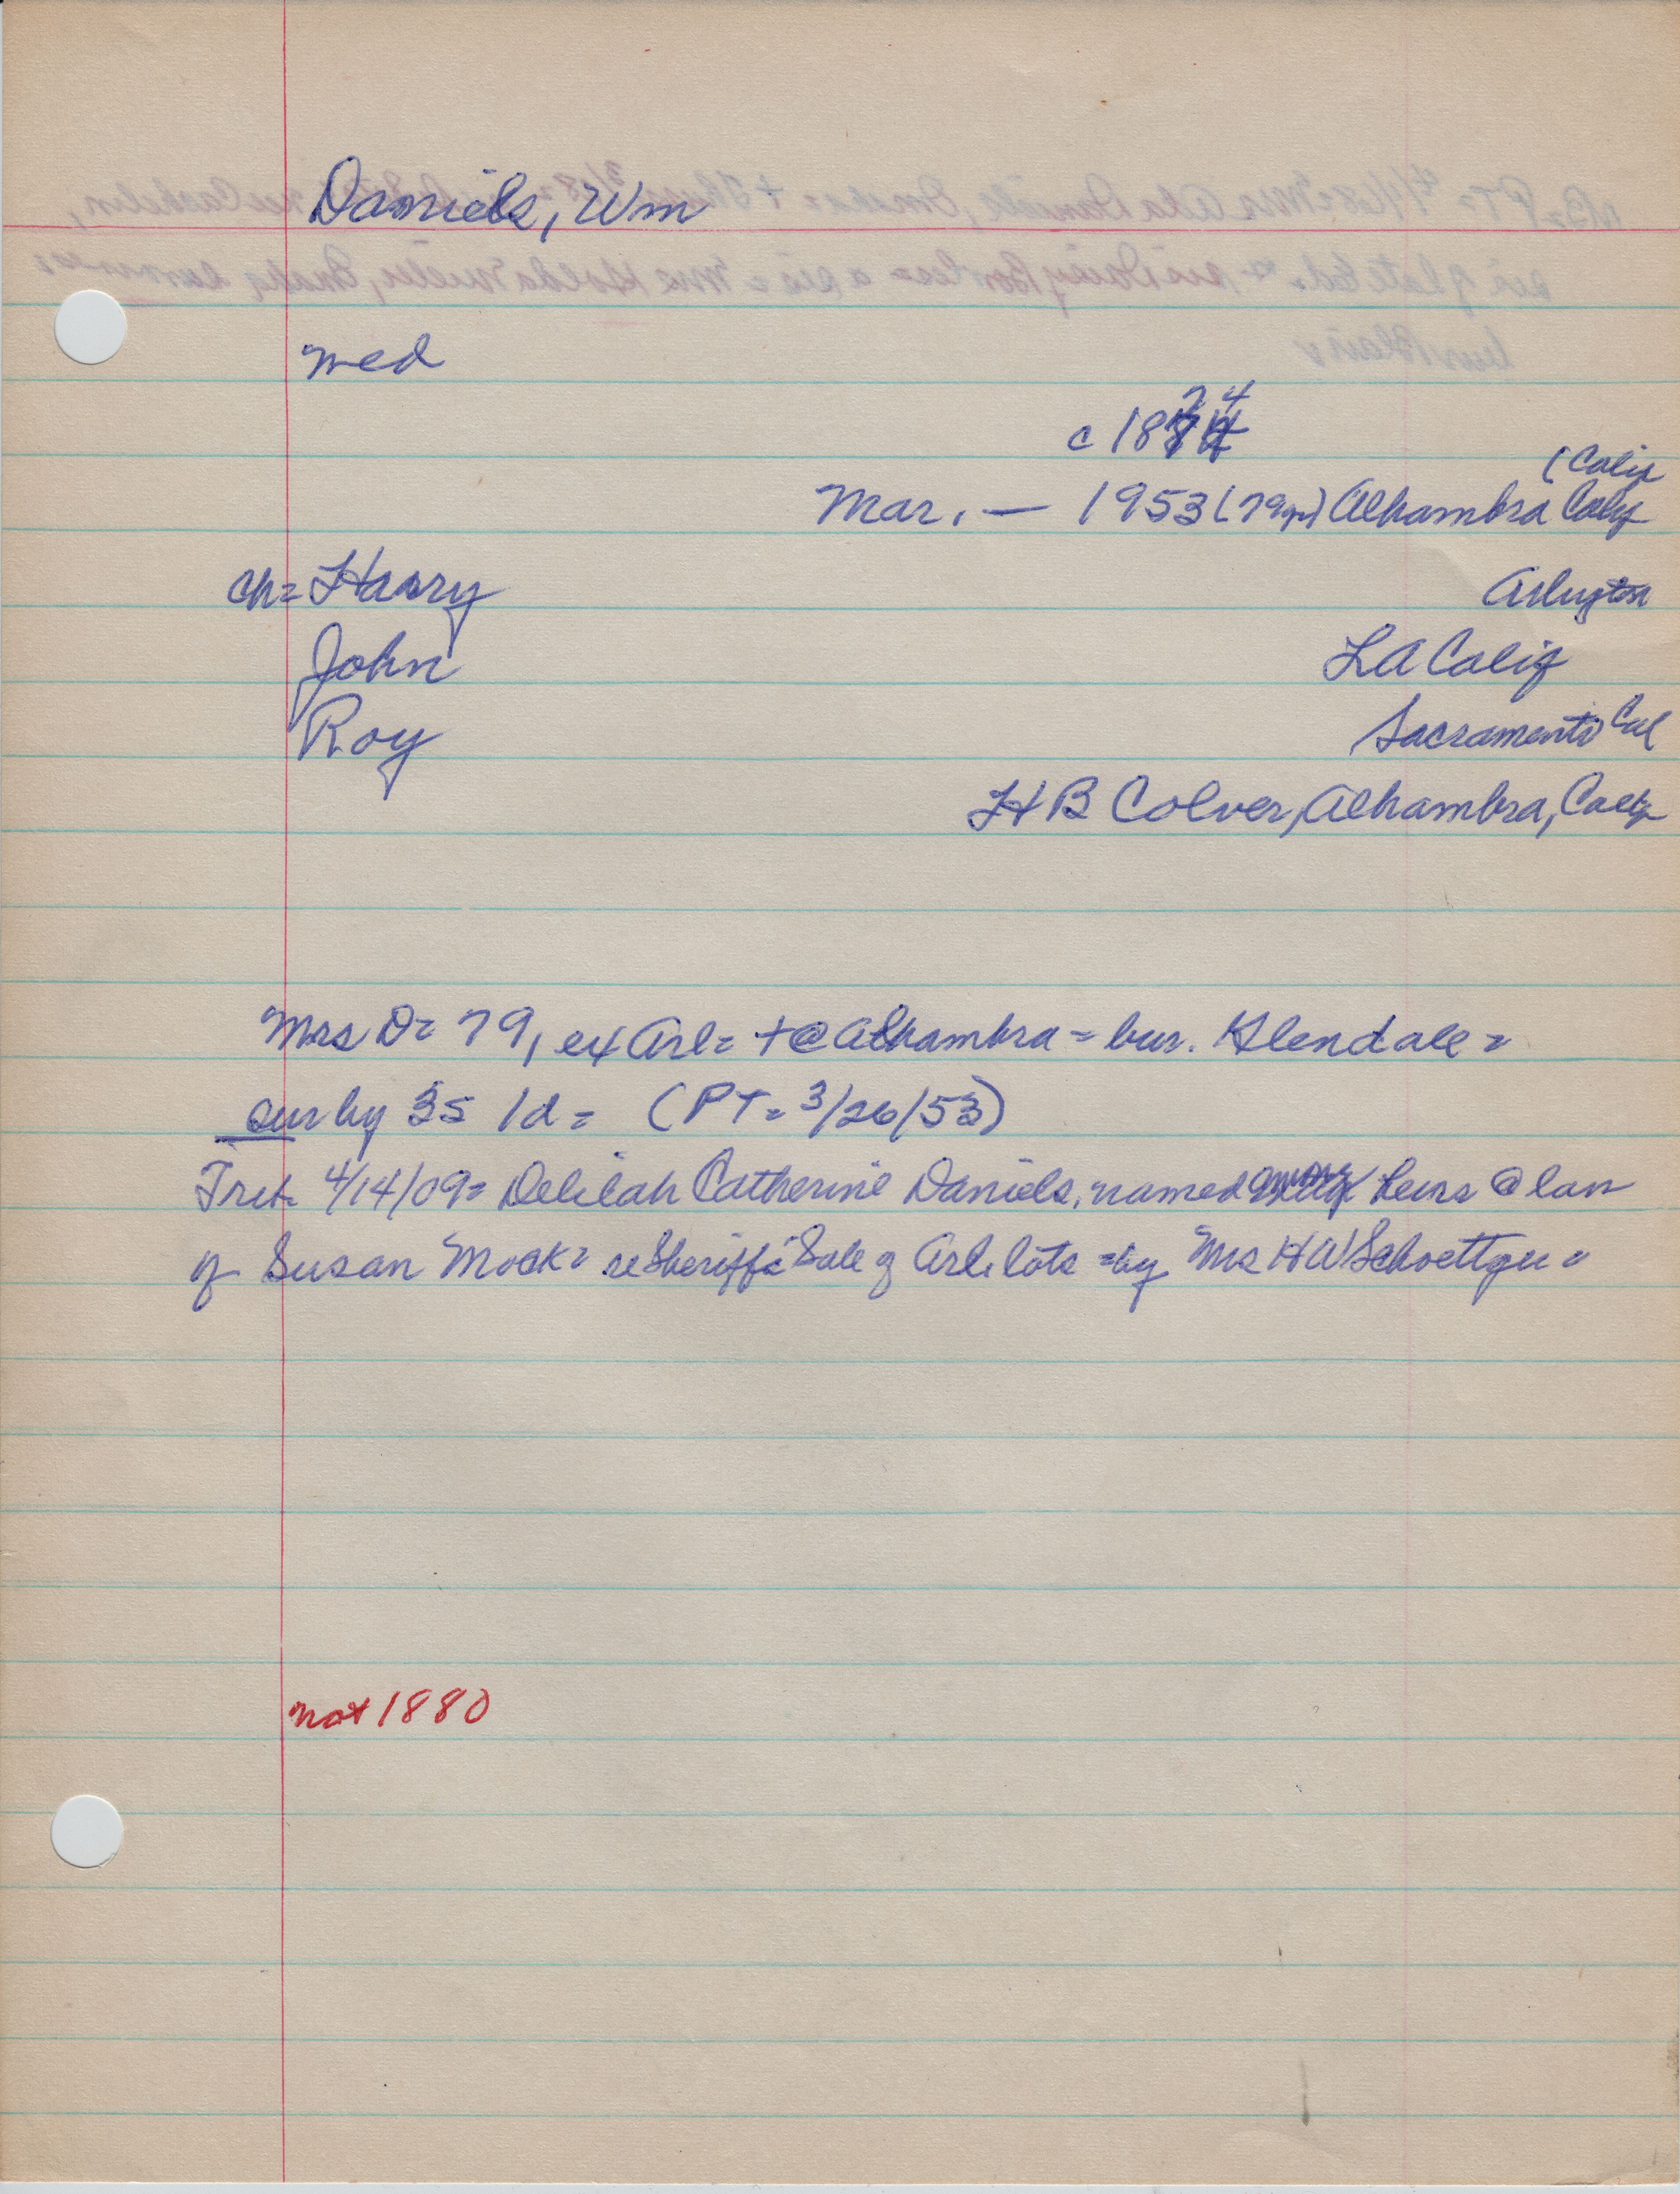 Daniels, Wm
med
c 1874
(Calif
Mar. — 1953 (79yr) Alhambra Calif
ch= Harry Arlington
John LA Calif
Roy Sacramento Cal
H B Colver, Alhambra, Calif
Mrs D= 79, ex Arl= +@ Alhambra = bur. Glendale =
sur by 3S 1d = (PT= 3/26/53)
Trib 4/14/09= Delilah Catherine Daniels, named among heirs @ law
of Susan Mock= re Sheriff's Sale of Arl. lots = by Mrs H W Schoettger =
not 1880